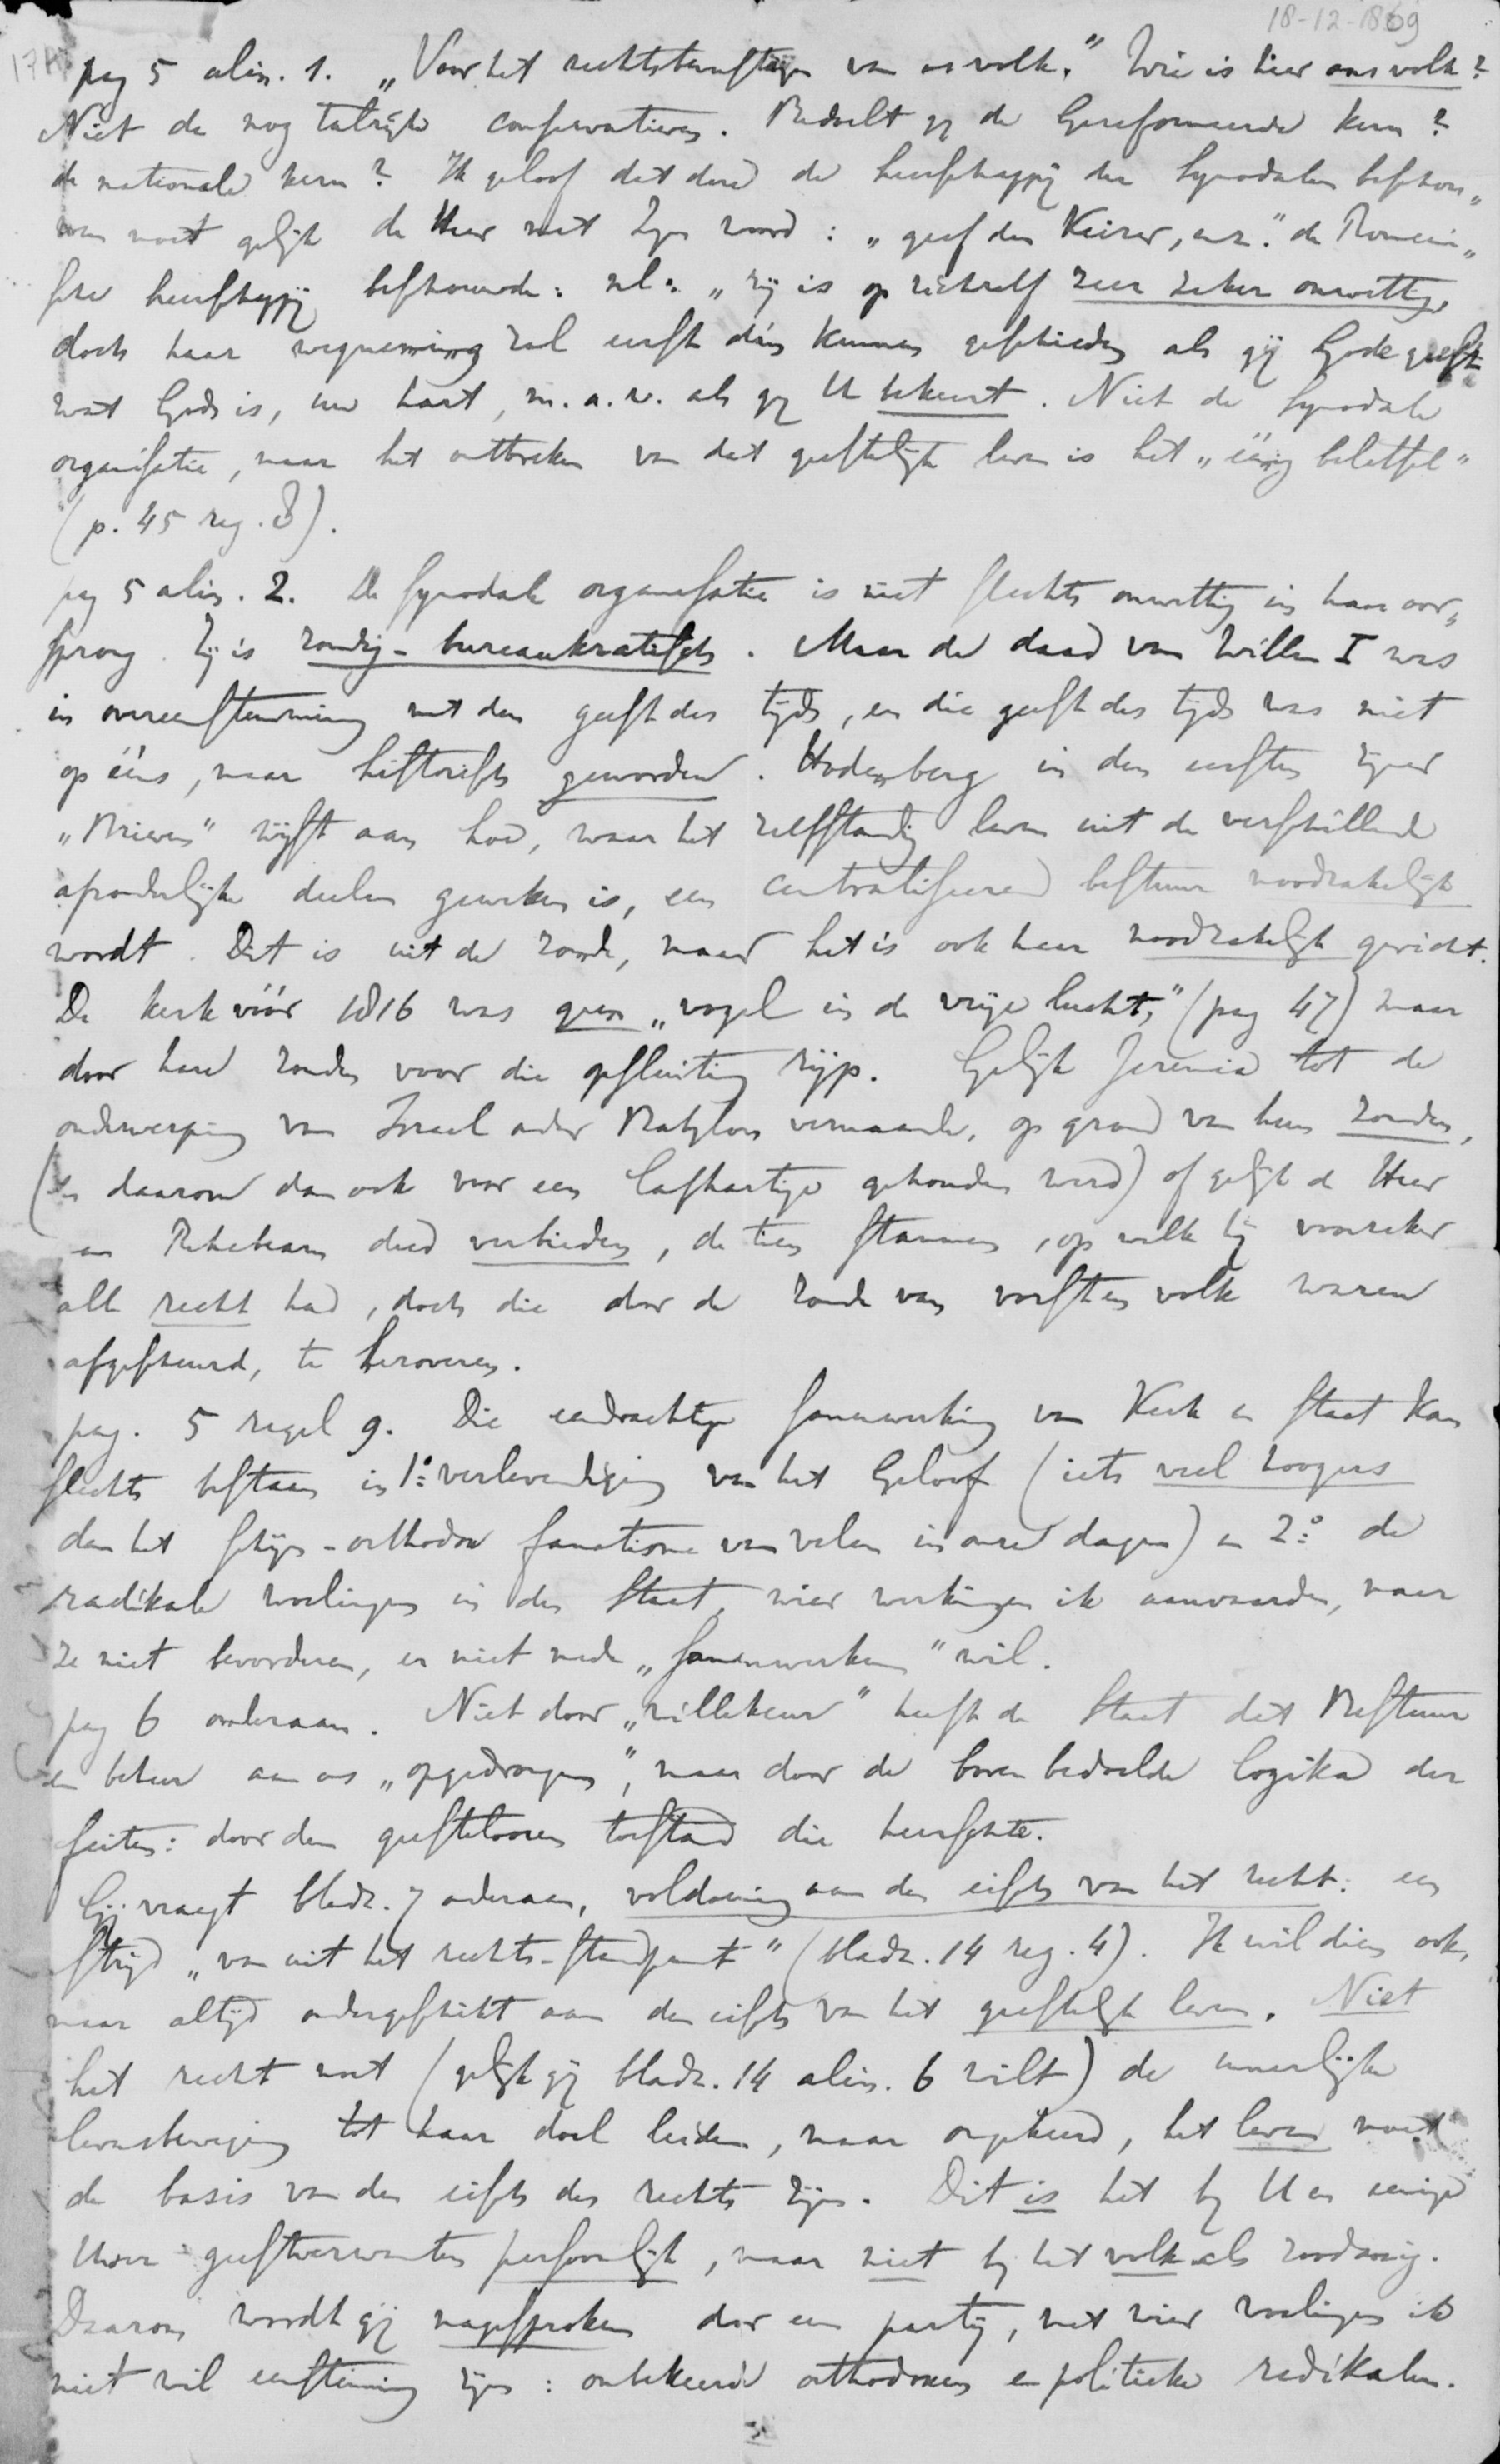 18-12-1869
174
pag 5 alin. 1. „Voor het rechtsbewustzijn van ons volk." Wie is hier ons volk?
Niet de nog talrijke conservatieven. Bedoelt gij de Gereformeerde kern?
de nationale kern? Ik geloof dat deze de heerschappij der Synodalen beschou„
wen moet gelijk de Heer met Zijn woord: „geef den Keizer, enz." de Romein„
sche heerschappij beschouwde: nl: „zij is op zichzelf zeer zeker onwettig,
doch haar wegneming zal eerst dán kunnen geschieden als gij Gode geeft
wat Gods is, uw hart, m.a.w. als gij U bekeert. Niet de Synodale
organisatie, maar het ontbreken van dat geestelijk leven is het „eenig beletsel"
(p. 45 reg. 8).
pag 5 alin. 2. De Synodale organisatie is niet slechts onwettig in haar oor„
sprong. Zij is zondig-bureaukratisch. Maar de daad van Willem I was
in overeenstemming met den geest des tijds, en die geest des tijds was niet
op ééns, maar historisch geworden. Hodenberg in den eersten zijner
„Brieven" wijst aan hoe, waar het zelfstandig leven uit de verschillende
afzonderlijke deelen geweken is, een centraliseerend bestuur noodzakelijk
wordt. Dit is uit de zonde, maar het is ook haar noodzakelijk gericht.
De kerk vóór 1816 was geen „vogel in de vrije lucht," (pag 47) maar
door hare zonden voor die opsluiting rijp. Gelijk Jeremia tot de
onderwerping van Israel onder Babylon vermaande, op grond van hun zonden,
(en daarom dan ook voor een lafhartige gehouden werd) of gelijk de Heer
aan Rehabeam deed verbieden, de tien stammen, op welke hij voorzeker
alle recht had, doch die door de zonde van vorst en volk waren
afgescheurd, te heroveren.
pag. 5 regel 9. Die eendrachtige samenwerking van Kerk en Staat kan
slechts bestaan in 1º verlevendiging van het Geloof (iets veel hoogers
dan het schijn-orthodox fanatisme van velen in onze dagen) en 2º de
radikale woelingen in den Staat, wier werkingen ik aanvaarden, maar
ze niet bevorderen, er niet mede „samenwerken" wil.
pag 6 onderaan. Niet door „willekeur" heeft de Staat dit Bestuur
en beheer aan ons „opgedrongen", maar door de boven bedoelde logika der
feiten: door den geesteloozen toestand die heerschte.
Gij vraagt bladz. 7 onderaan, voldoening aan den eisch van het recht: een
strijd „van uit het rechts-standpunt" (bladz. 14 reg. 4). Ik wil dien ook,
maar altijd ondergeschikt aan den eisch van het geestelijk leven. Niet
het recht moet (gelijk gij bladz. 14 alin. 6 wilt) de innerlijke
levensbeweging tot haar doel leiden, maar omgekeerd, het leven moet
de basis van den eisch des rechts zijn. Dit is het bij U en eenige
Uwer geestverwanten persoonlijk, maar niet bij het volk als zoodanig.
Daarom wordt gij nagesproken door een partij, met wier woelingen ik
niet wil eenstemmig zijn: onbekeerde orthodoxen en politieke radikalen.